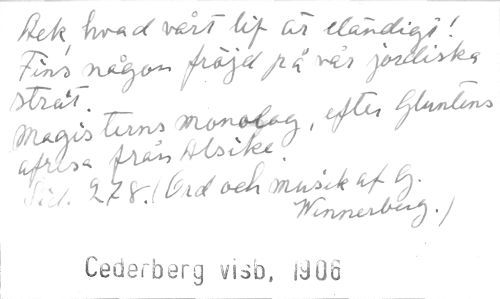 Ack, hvad vårt lif är eländigt!
Fins någon fröjd på vår jordiska
stråt.
Magisterns monolog, efter Gluntens
afresa från Alsike.
Sid. 278. (Ord och musik af G.
Wennerberg.)
Cederberg visb, 1906